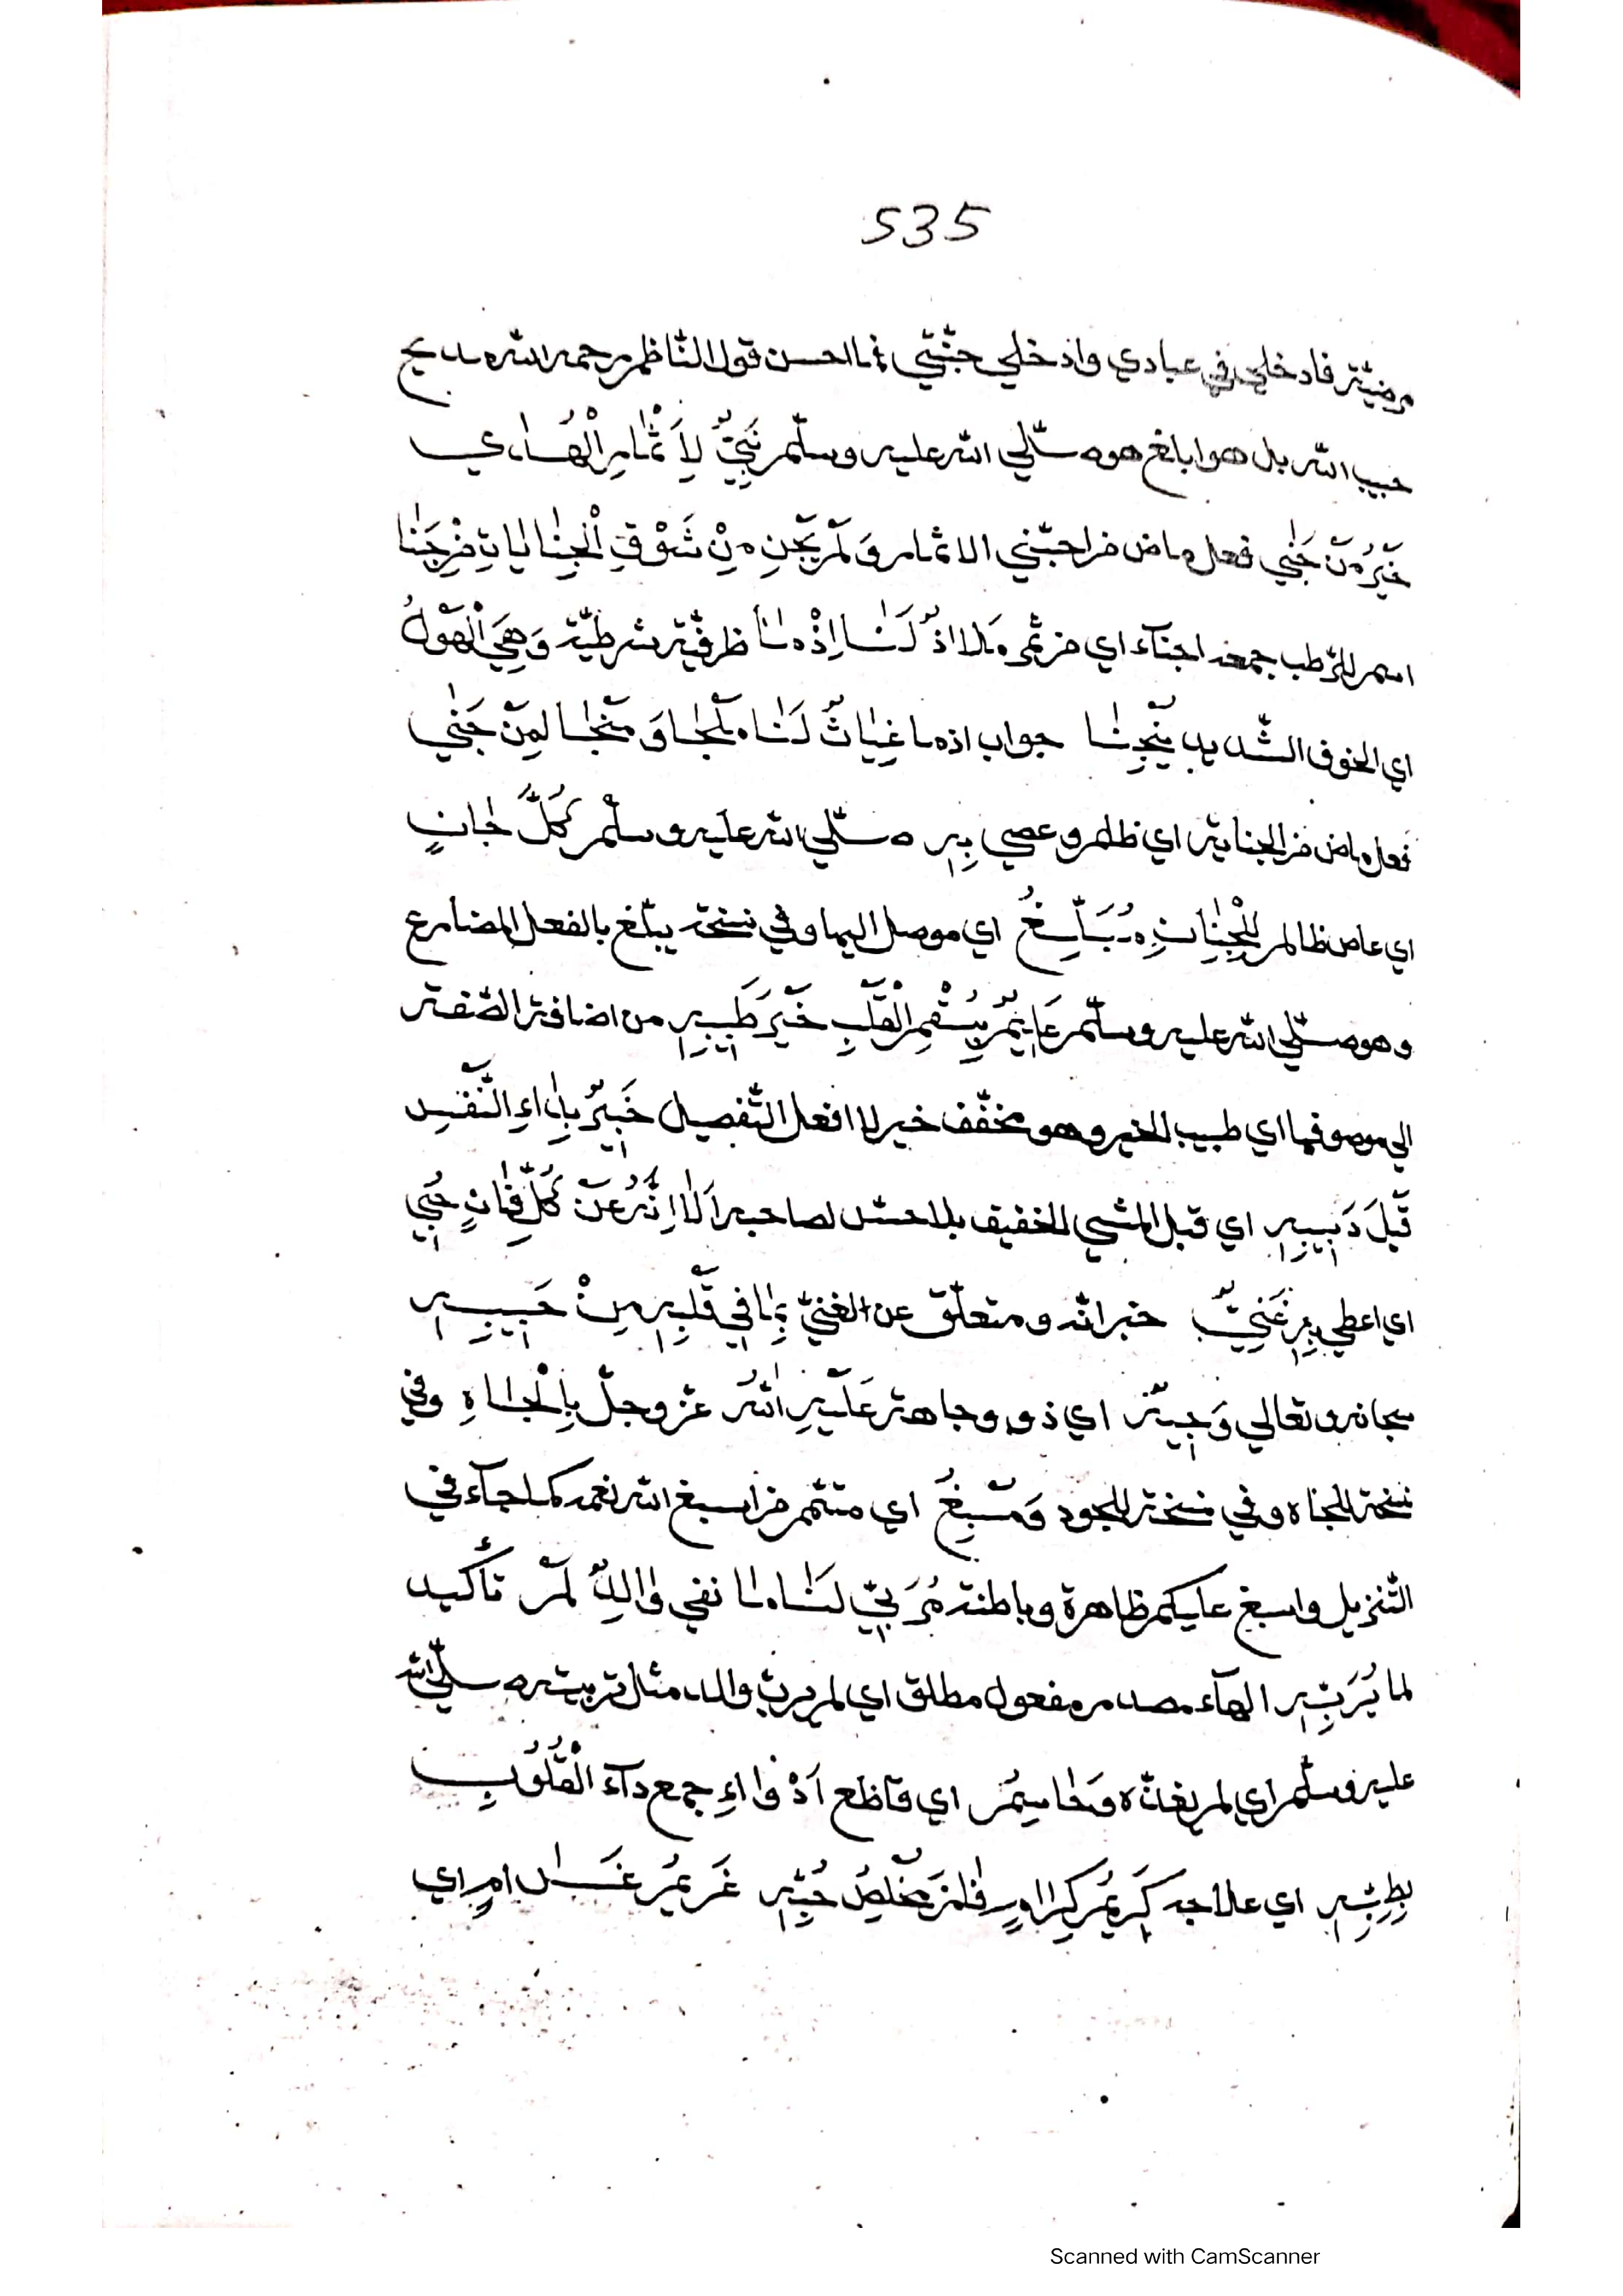 535
مرضيّة فادخلي في عبادي وادخلي جنّتي فما احسن قول النّاظم رحمه الله مديح
حبيب الله بل هو ابلغ هو صلّي الله عليه وسلّم نَبِيٌّ لِأَثْمَارِ الْهُدٰي
خَيْرُ مَنْ جَنٰي فعل ماض من اجتني الاثمار وَلَمْ يَجْنِ مِنْ شَوْقِ الْجِنَايَاتِ مَنْ جَنَا
اسم للرّطب جمعه اجنآء اي من ثمر مَلَاذٌ لَنَا اِذْمَا ظرفيّة شرطيّة وَهِيَ الْهَوْلُ
اي الخوف الشّديد يُنْجِنَا جواب اذما غِيَاثٌ لَنَا مَلْجَا وَ مَنْجَا لِمَنْ جَنٰي
فعل ماض من الجناية اي ظلم وعصي بِهِ صلّي الله عليه وسلّم كُلُّ جَانٍ
اي عاص ظالم لِلْجِنَانِ مُبَلِّغُ اي موصل اليها وفي نسخة يبلّغ بالفعل المضارع
وهو صلّي الله عليه وسلّم عَلِيمٌ بِسُقْمِ الْقَلْبِ خَيْرُ طَبِيبِهِ من اضافة الصّفة
الي موصوفها اي طبيب الخير وهو مخفّف خير لا افعل التّفضيل خَبِيرٌ بِدَاءِ النَّفْسِ
قَبْلَ دَبِيبِهِ اي قبل المشي الخفيف بلا حسّ لصاحبه اَلَا اِنَّهُ عَنْ كُلِّ فَانٍ حُبِي
اي اعطي بِهِ غَنِيٌّ خبر انّه و متعلّق عن الغنيّ بِمَا فِي قَلْبِهِ مِنْ حَبِيبِهِ
سبحانه وتعالي وَجِيهٌ اي ذو وجاهة عَلَيْهِ اللهُ عزّ وجلّ بِالْجَاهِ وفي
نسخة للجاه وفي نسخة للجود وَمُسْبِغُ اي متمّم من اسبغ الله نعمه كما جآء في
التّنزيل واسبغ عليكم ظاهرة وباطنة مُرَبِّي لَنَا مَا نفي وَالِدٌ لَمْ تأكيد
لما يُرَبِّهِ الهآء مصدر مفعول مطلق اي لم يربّ والد مثل تربيته صلّي الله
عليه وسلّم اي لم يغذّه وَحَاسِمُ اي قاطع اَدْوَاءِ جمع دآء الْقُلُوبِ
بِطِبِّهِ اي علاجه كَرِيمُ كِرَامٍ فَلْنَخَلِّصْ حُبَّهِ غَرِيمُ غَرَامٍ اي